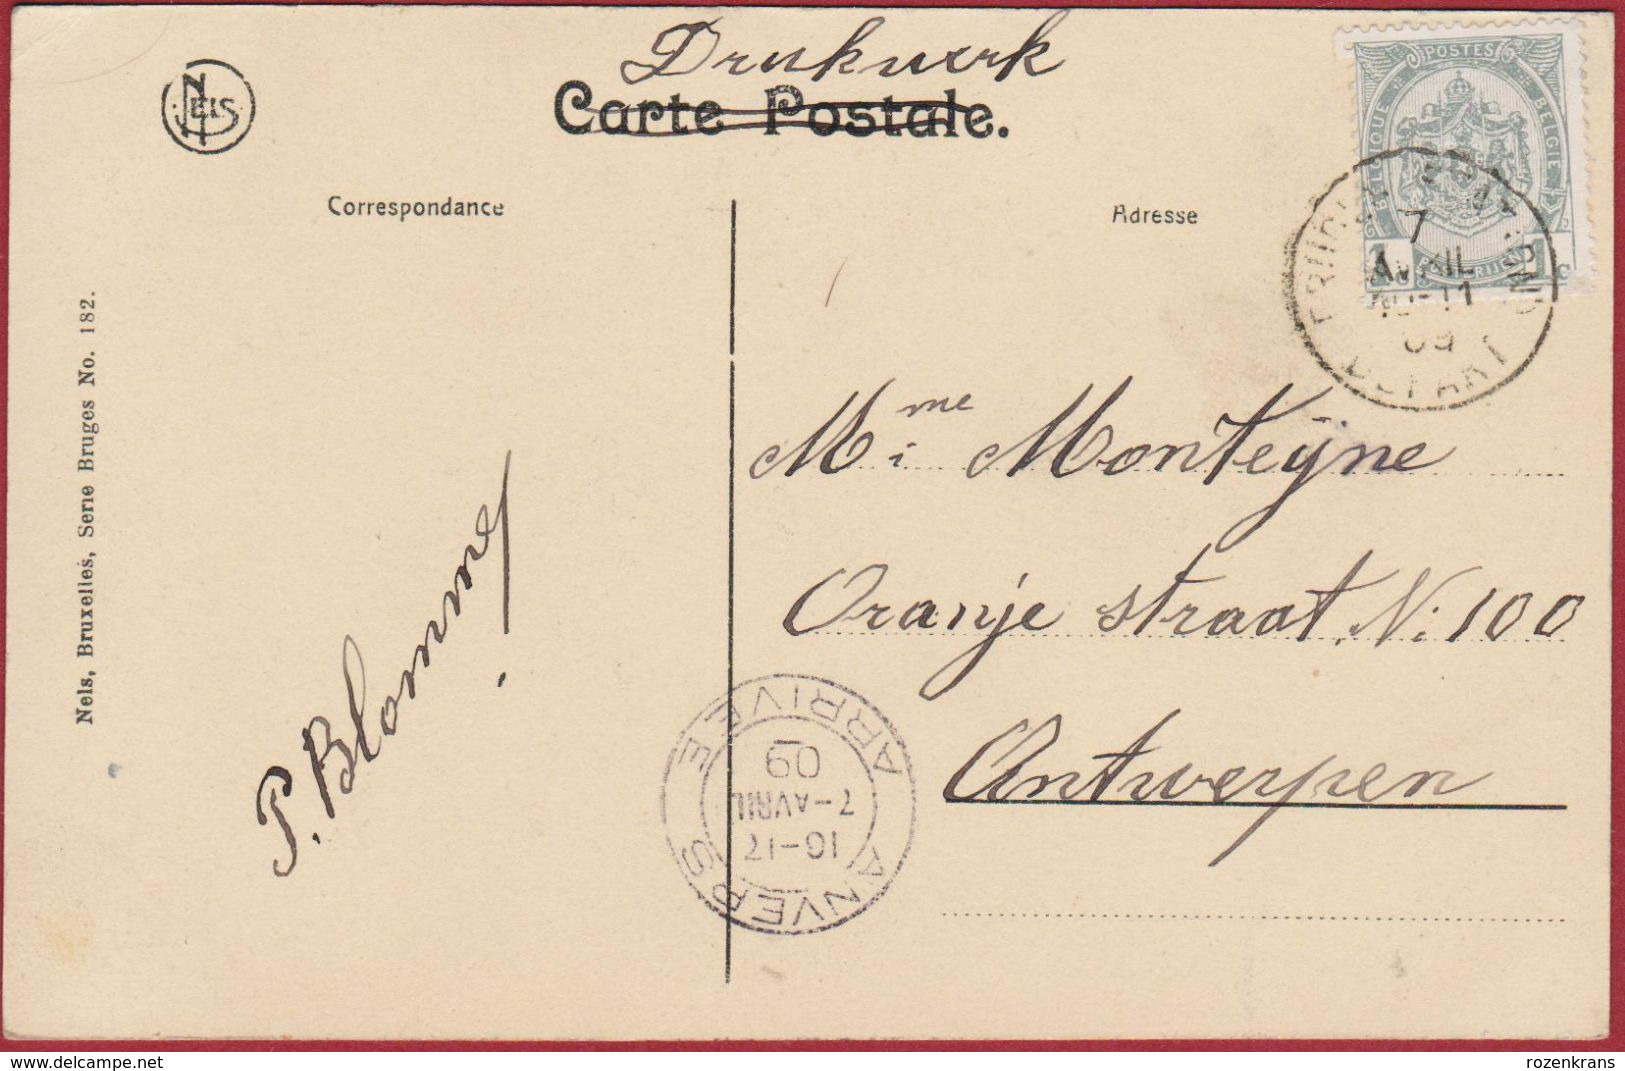 Drukwerk
Carte Postale.
NELS
Correspondance
Adresse
POSTES
BELGIQUE
BELGIE
1
1
7
AVRIL
11
09
DEPART
Mme Monteyne
Oranje straat, N: 100
Antwerpen
P. Blomme
ANVERS
16-17
7-AVRIL
09
ARRIVEE
Nels, Bruxelles, Serie Bruges No. 182.
delcampe.net
rozenkrans